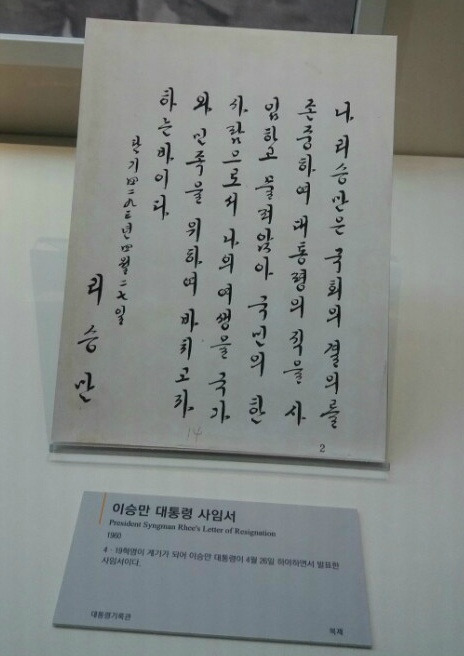 나 리승만은 국회의 결의를
존중하여 대통령의 직을 사
임하고 물러앉아 국민의 한
사람으로서 나의 여생을 국가
와 민족을 위하여 바치고자
하는바이다
단기四二九三년四월二七일
리승만
14
2
이승만 대통령 사임서
President Syngman Rhee's Letter of Resignation
1960
4 · 19혁명이 계기가 되어 이승만 대통령이 4월 26일 하야하면서 발표한
사임서이다.
대통령기록관
복제